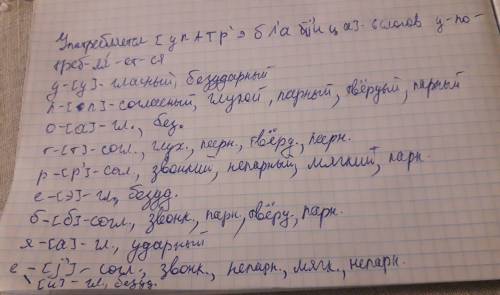 Употребляется [упатр'эбл'айицаэ]- 6 слогов у-по-
треб-ля-ет-ся
у-[у]-гласный, безударный
п-[п]-согласный, глухой, парный, твёрдый, парный
о-[а]-гл., без.
т-[т]-согл., глух., парн., твёрд., парн.
р-[р']-согл., звонкий, непарный, мягкий, парн.
е-[э]-гл., безуд.
б-[б]-согл., звонк., парн, твёрд., парн.
я-[а]-гл., ударный
е-[j']-согл., звонк., непарн., мягк., непарн.
[и]-гл., безуд.